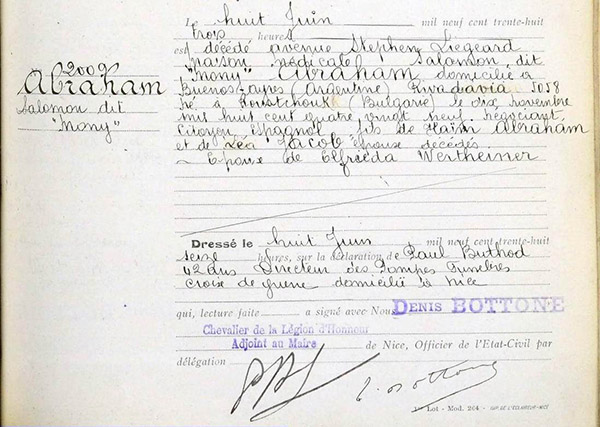 Le huit Juin mil neuf cent trente-huit
trois heures
est décédé avenue Stephen Liegeard
maison médicale Salomon dit
"Mony" Abraham domicilié à
Buenos-Ayres (Argentine) Rivadavia 5058
né à Roustchouk (Bulgarie) le dix novembre
mil huit cent quatre vingt neuf négociant
Citoyen Espagnol fils de Haïm Abraham
et de Léa Jacob époux décédés
Epoux de Elfrieda Wertheimer
2009
Abraham
Salomon dit
"Mony"
Dressé le huit Juin mil neuf cent trente-huit
seize heures, sur la déclaration de Paul Buthod
42 ans Directeur des Pompes Funèbres
croix de guerre domicilié à Nice
qui, lecture faite a signé avec Nous DENIS BOTTONE
Chevalier de la Légion d'Honneur
Adjoint au Maire de Nice, Officier de l'Etat-Civil par
délégation
Lot - Mod. 264 - IMP. DE L'ECLAIREUR-NICE